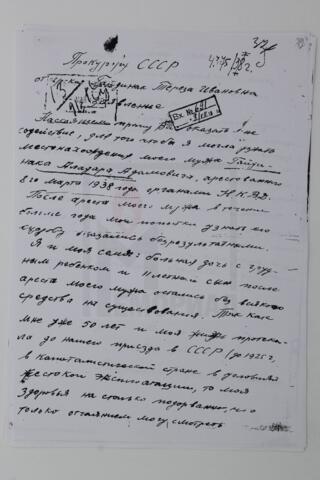 Прокурору СССР
от гр-ки Гайдинак Тереза Ивановна
Заявление
Настоящим прошу Вас оказать мне
содействие, для того чтобы я могла узнать
местонахождения моего мужа
нака Аладара Адамовича, арестованного
8го марта 1938 года органами Н.К.В.Д.
После ареста моего мужа в течении
более года мои попытки узнать его
судьбу оказались безрезультатными.
Я и моя семья: больная дочь с груд-
ным ребенком и 11 летний сын после
ареста моего мужа остались без всяких
средств на существования. Так как
мне уже 50 лет и моя жизнь протека-
ла до нашего приезда в СССР (до 1925 г.
в капиталистической стране в условиях
жестокой эксплоатации, то моя
здоровья на столько подорванно, что
только отчаянием могу смотреть